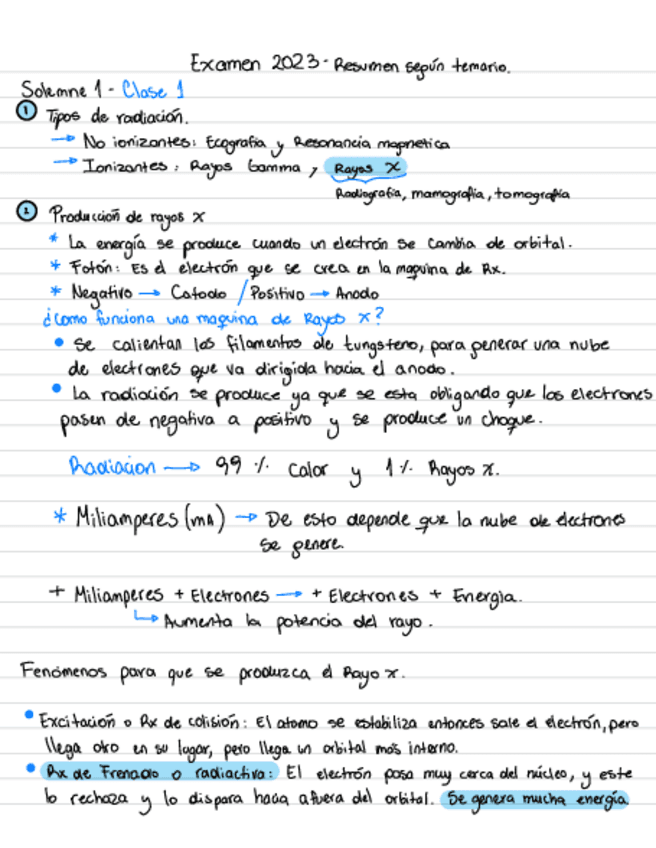 Examen 2023 - Resumen según temario.
Solemne 1 - Clase 1
1 Tipos de radiación.
→ No ionizantes: Ecografía y Resonancia magnetica
→ Ionizantes: Rayos Gamma, Rayos X
Radiografía, mamografía, tomografía
2 Producción de rayos x
* La energía se produce cuando un electrón se cambia de orbital.
* Fotón: Es el electrón que se crea en la maquina de Rx.
* Negativo → Catodo / Positivo → Anodo
¿Como funciona una maquina de Rayos x?
• Se calientan los filamentos de tungsteno, para generar una nube
de electrones que va dirigida hacia el anodo.
• La radiación se produce ya que se esta obligando que los electrones
pasen de negativa a positivo y se produce un choque.
Radiacion → 99 % Calor y 1 % Rayos x.
* Miliamperes (mA) → De esto depende que la nube de electrones
se genere.
+ Miliamperes + Electrones → + Electrones + Energia.
↳ Aumenta la potencia del rayo.
Fenómenos para que se produzca el Rayo x.
• Excitación o Rx de colisión: El atomo se estabiliza entonces sale el electrón, pero
llega otro en su lugar, pero llega un orbital más interno.
• Rx de Frenado o radiactiva: El electrón pasa muy cerca del núcleo, y este
lo rechaza y lo dispara hacia afuera del orbital. Se genera mucha energía